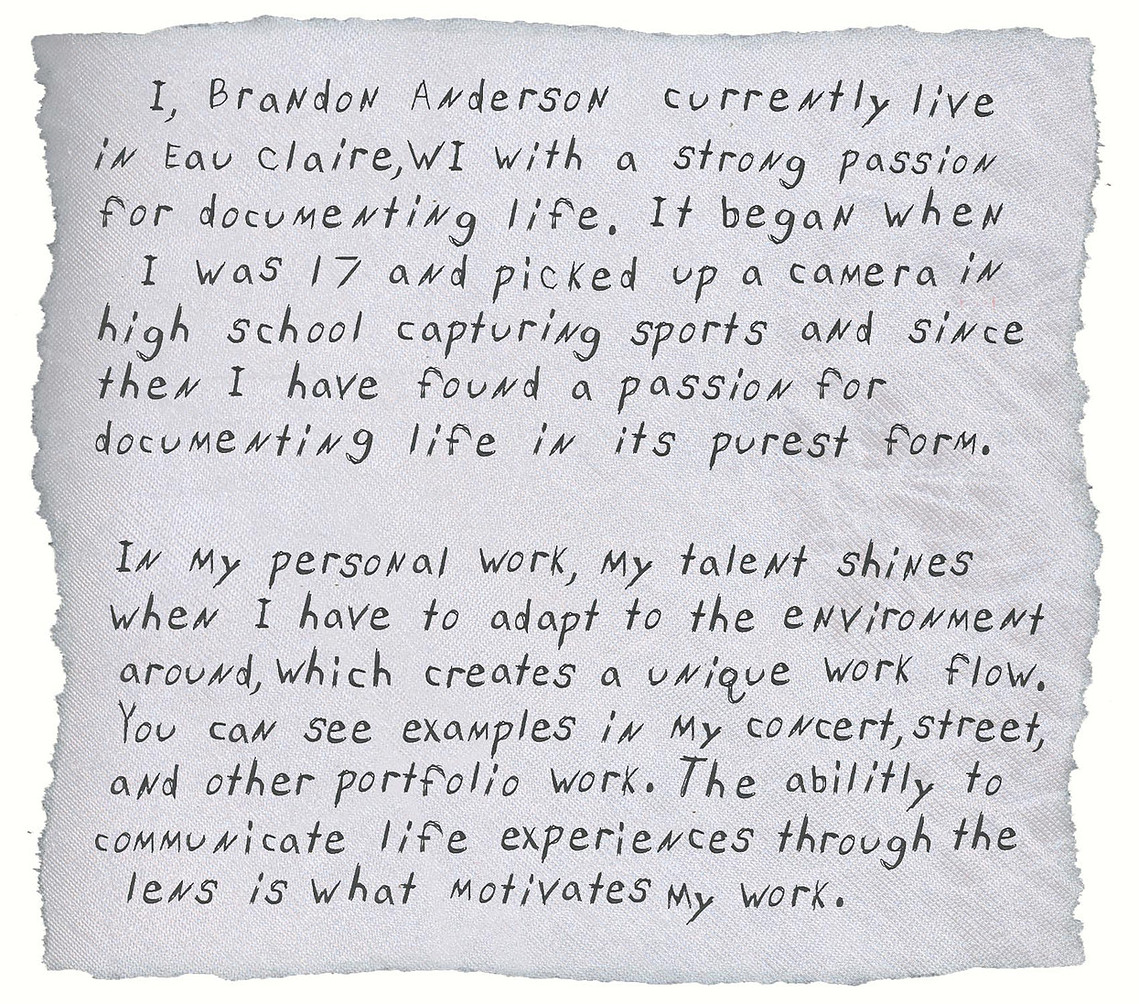 I, Brandon Anderson currently live
in Eau Claire,WI with a strong passion
for documenting life. It began when
I was 17 and picked up a camera in
high school capturing sports and since
then I have found a passion for
documenting life in its purest form.
In my personal work, my talent shines
when I have to adapt to the environment
around, which creates a unique work flow.
You can see examples in my concert, street,
and other portfolio work. The abilitly to
communicate life experiences through the
lens is what motivates my work.